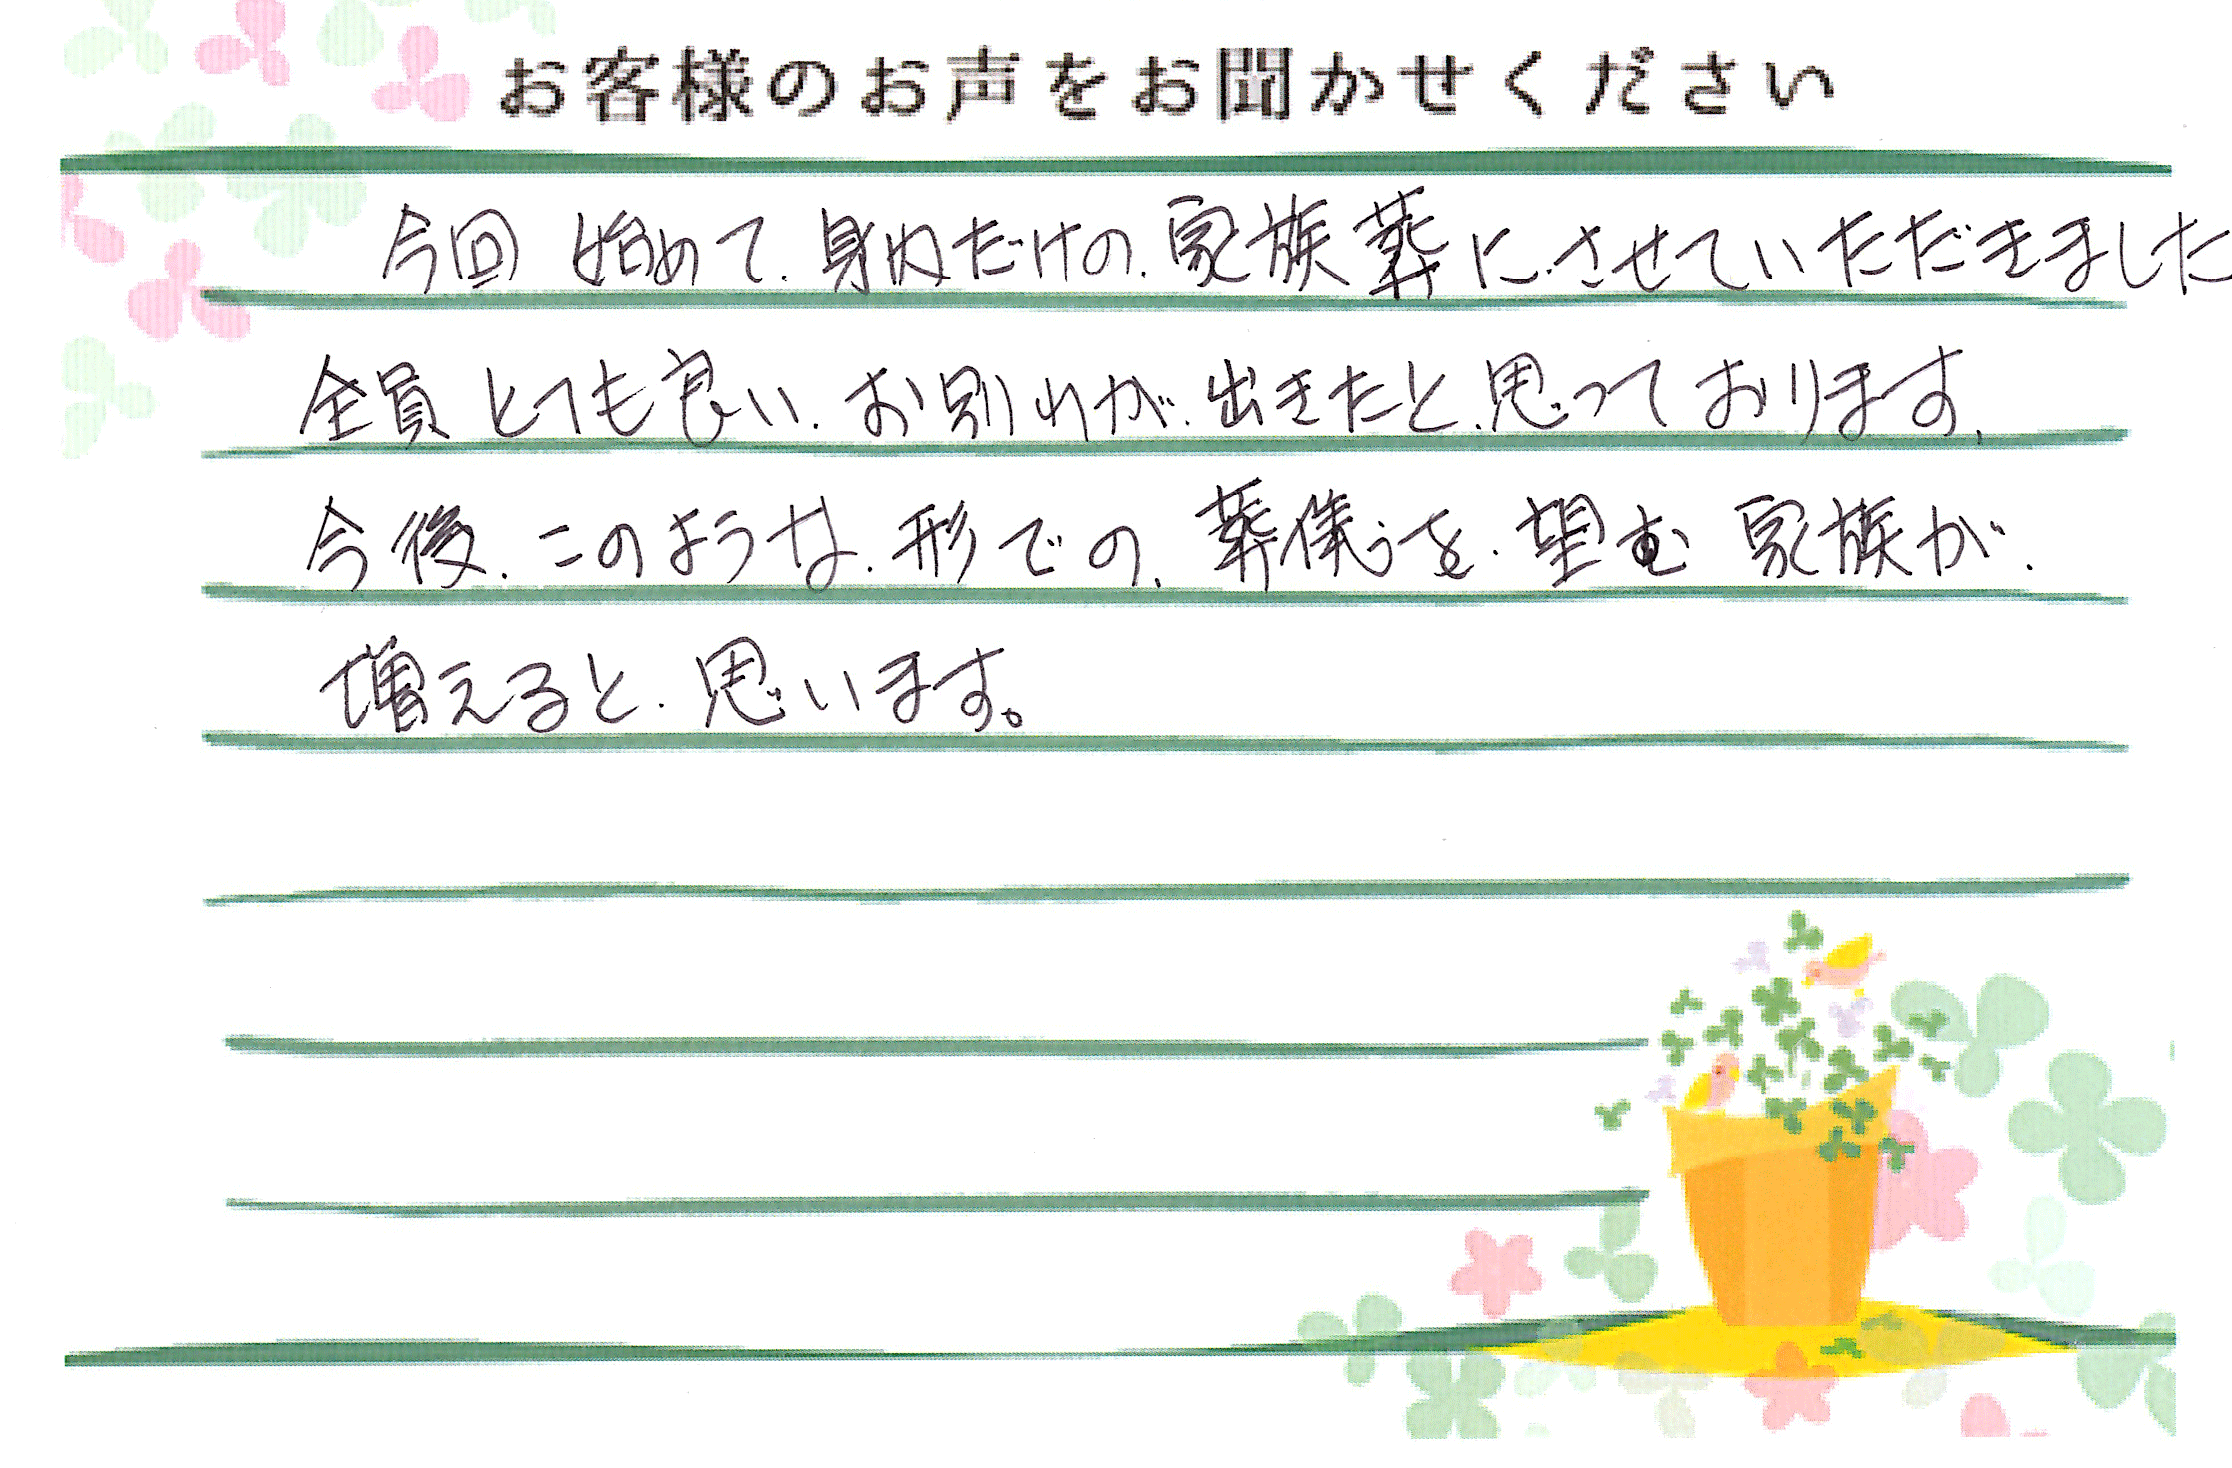 お客様のお声をお聞かせください
今回 始めて. 身内だけの. 家族葬に.させていただきました
全員 とても良い. お別れが. 出きたと.思っております.
今後. このような. 形での. 葬儀を. 望む 家族が.
増えると. 思います。